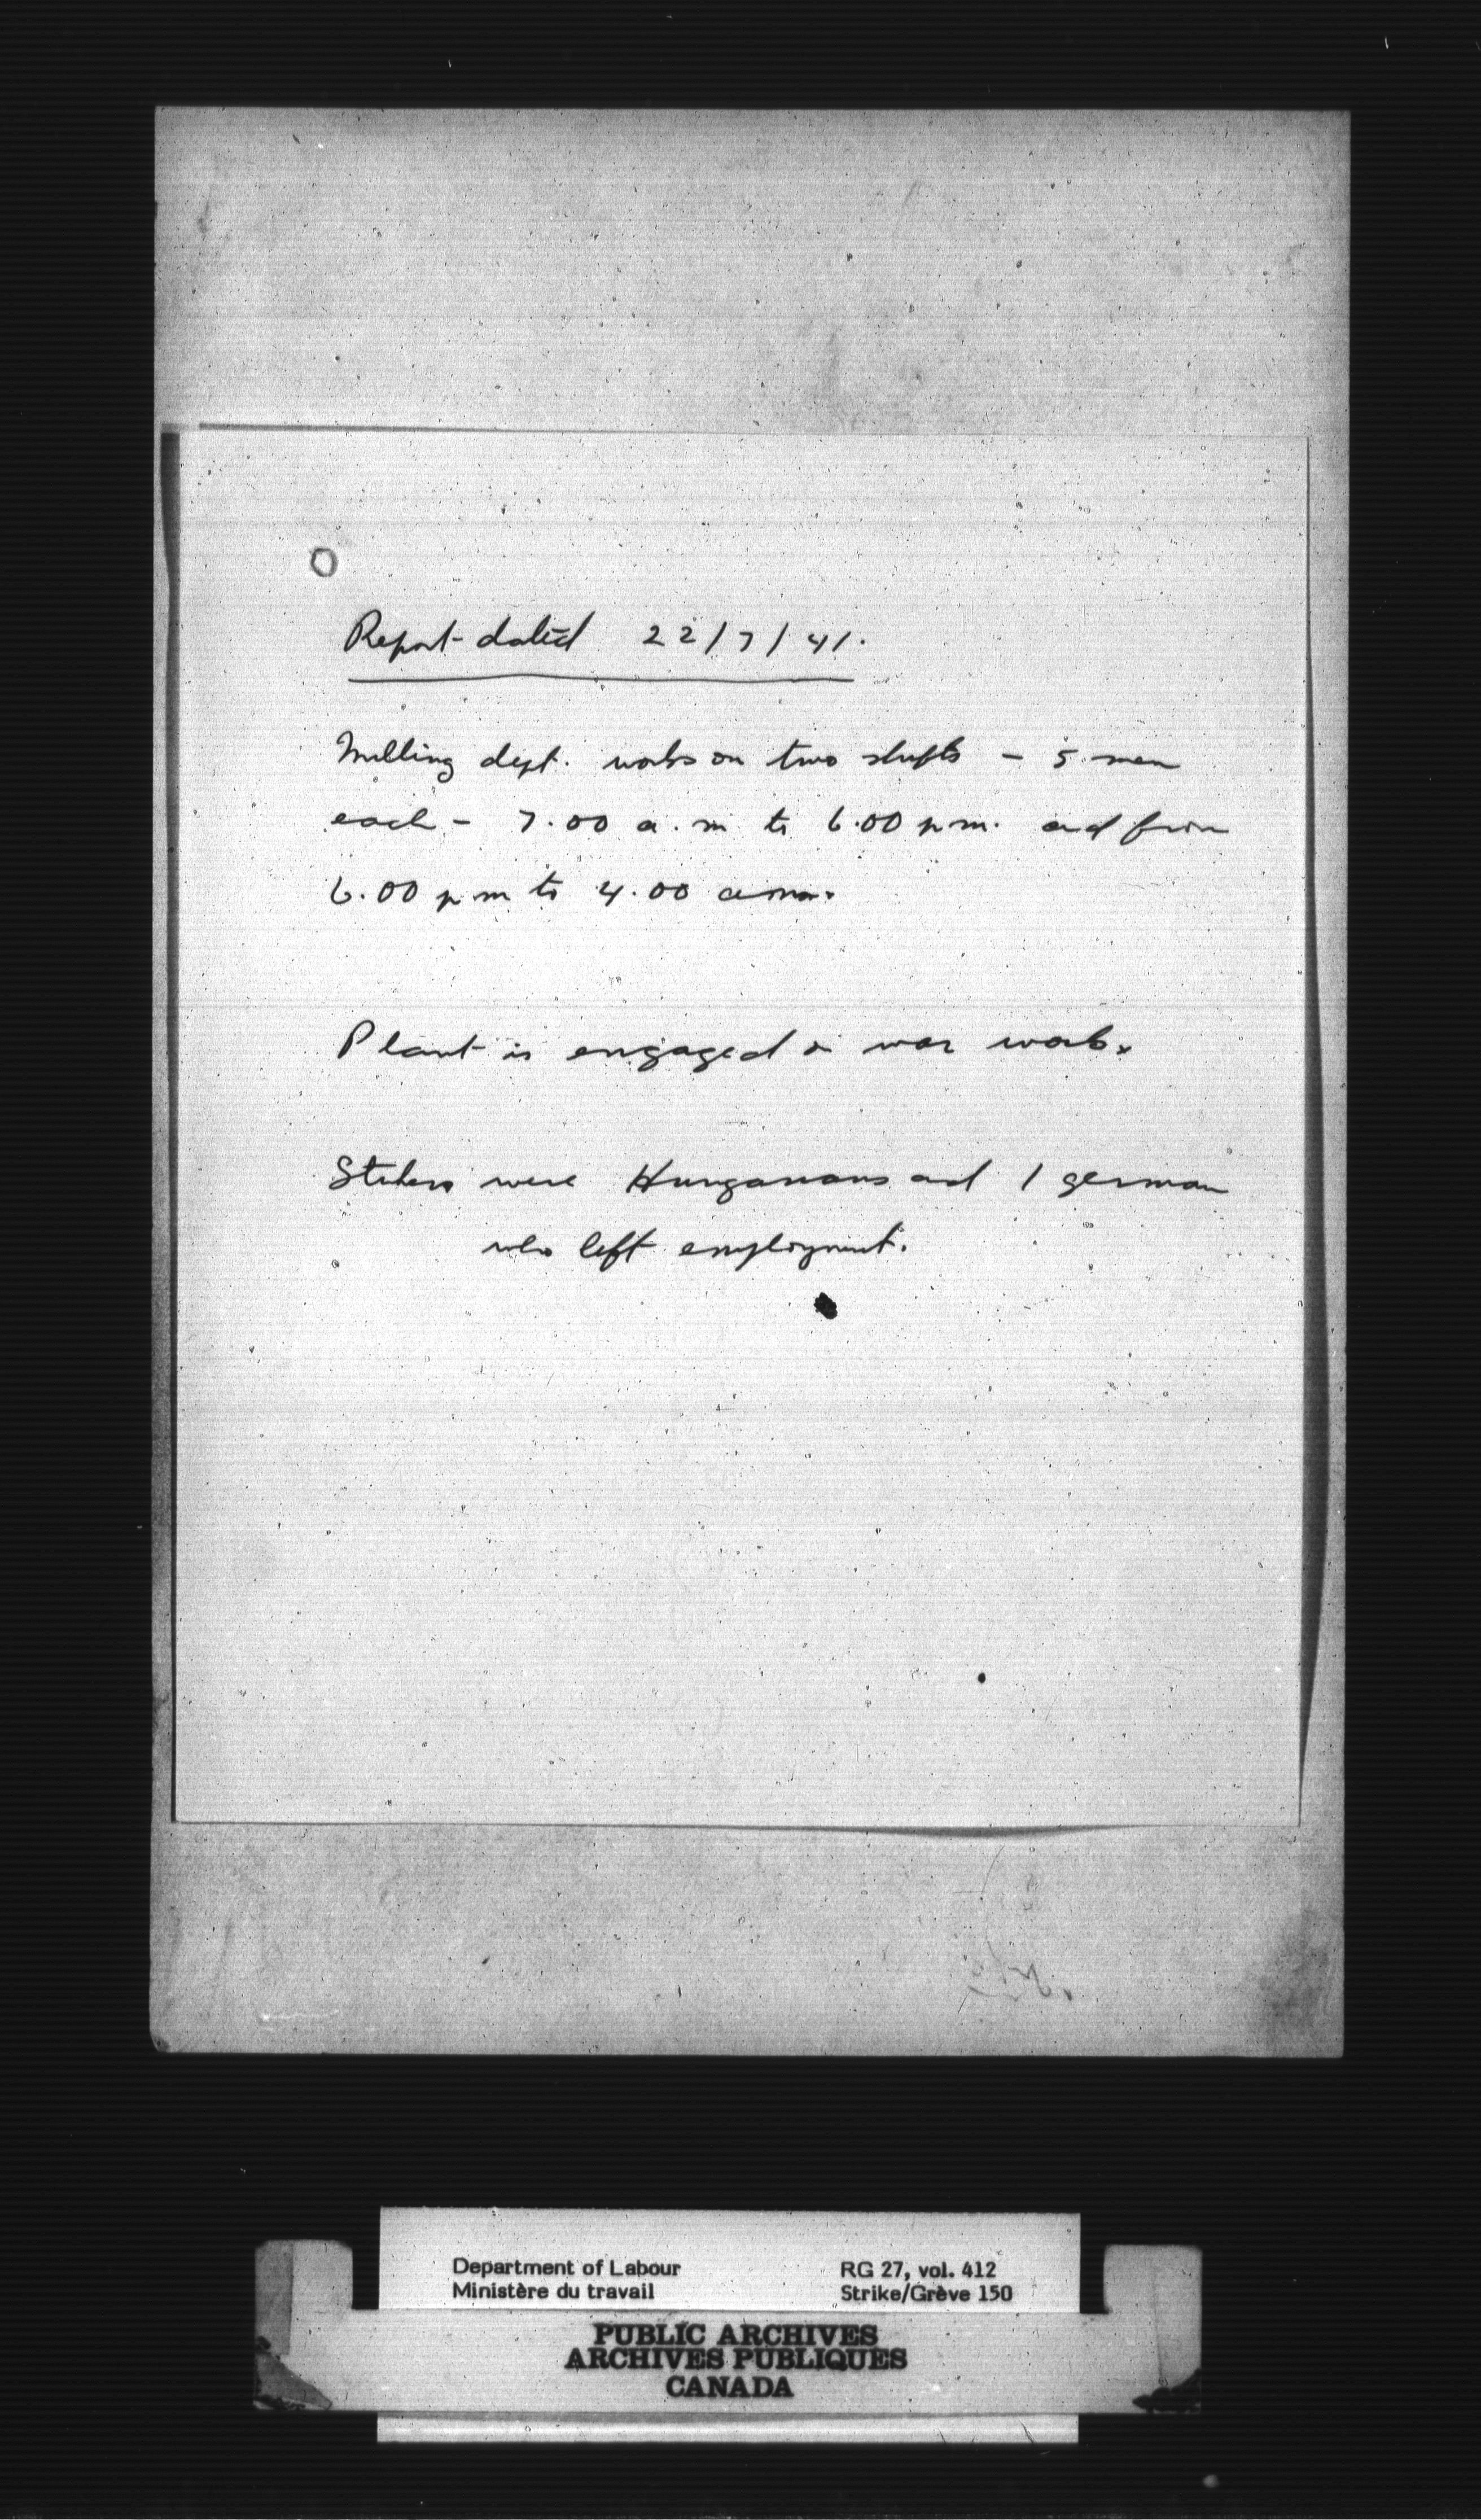 Report dated 22/7/41.
Milling dept. works on two shifts – 5 men
each – 7.00 a.m. to 6.00 p.m. and from
6.00 p m to 4.00 a.m.
Plant is engaged on war work.
Strikers were Hungarians and 1 german
who left employment.
Department of Labour
Ministère du travail
RG 27, vol. 412
Strike/Grève 150
PUBLIC ARCHIVES
ARCHIVES PUBLIQUES
CANADA